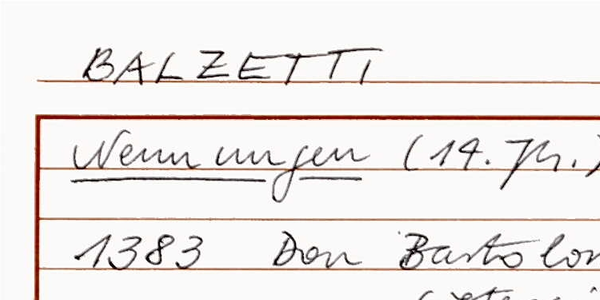 BALZETTI
Nennungen (14. Jh.)
1383 Don Bartolom